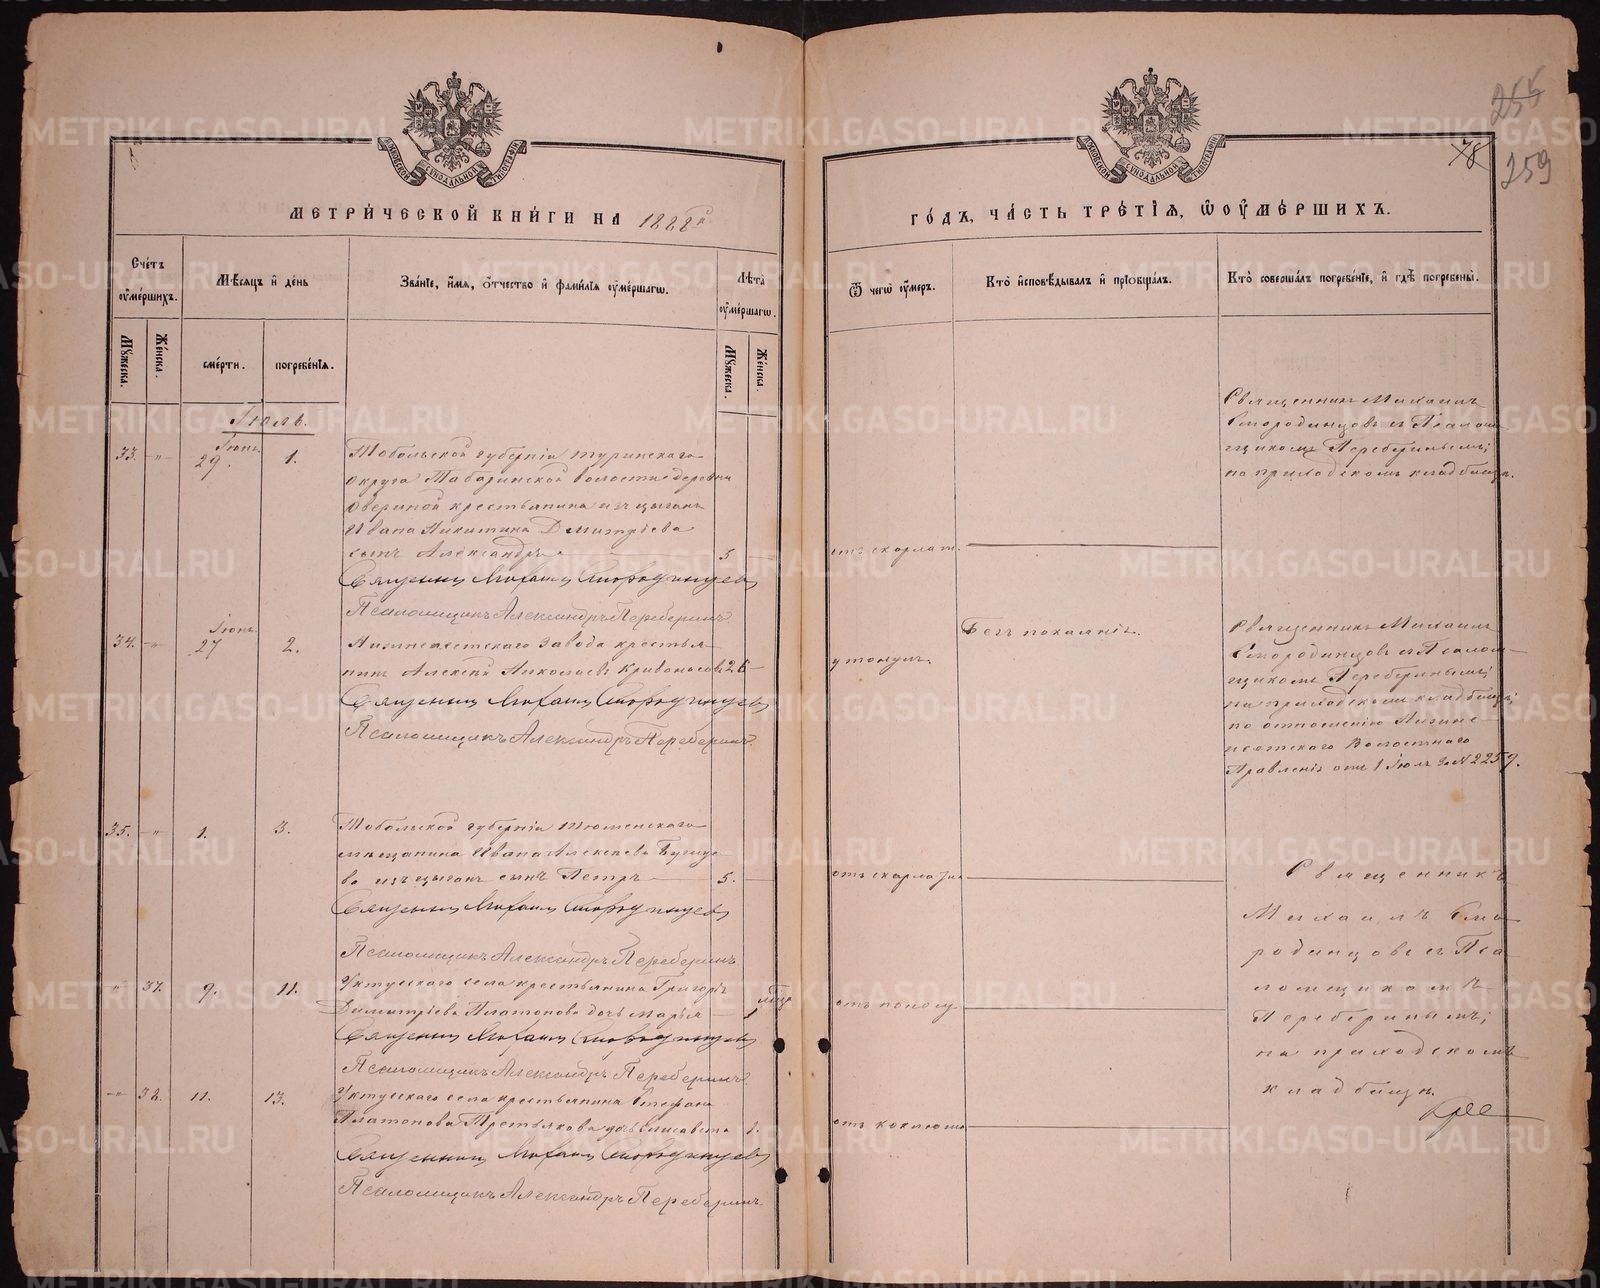 255
78
259
МЕТРИЧЕСКОЙ КНИГИ НА 1888й
ГОДЪ, ЧАСТЬ ТРЕТІЯ, Ѿ ОУМЕРШИХЪ.
Счетъ оумершихъ.
Мужеска.
Женска.
Мѣсяцъ и день
смерти.
погребенія.
Званіе, имя, отчество и фамилія оумершагѡ.
Лѣта оумершагѡ.
Мужеска.
Женска.
Ѿ чегѡ оумеръ.
Кто исповѣдывалъ и пріобщалъ.
Кто совершалъ погребеніе, и гдѣ погребены.
Іюль.
33. -"- Іюнь 29. 1.
Тобольской губерніи Туринскаго
округа Табаринской волости деревни
крестьянина изъ цыганъ
Ивана Никитина Дмитріева
сынъ Александръ 5
отъ скарлат.
Священникъ Михаилъ
Смородинцовъ съ Псалом-
щикомъ Переберинымъ;
на приходскомъ кладбищѣ.
Священникъ Михаилъ Смородинцевъ
Псаломщикъ Александръ Переберинъ
34. -"- Іюнь 27 2.
Нижнеисетскаго завода крестья-
нинъ Алексѣй Николаевъ Кривоносовъ 26
утонулъ.
Безъ покаянія.
Священникъ Михаилъ
Смородинцовъ съ Псалом-
щикомъ Переберинымъ;
на приходскомъ кладбищѣ;
по отношенію Нижне-
исетскаго Волостнаго
Правленія отъ 1 Іюля за № 2259.
Священникъ Михаилъ Смородинцевъ
Псаломщикъ Александръ Переберинъ
35. -"- 1. 3.
Тобольской губерніи Тюменскаго
мѣщанина Ивана Алексѣева
изъ цыганъ сынъ Петръ 5.
отъ скарлати
Священникъ
Михаилъ Смо-
родинцовъ съ Пса-
ломщикомъ
Переберинымъ;
на приходскомъ
кладбищѣ.
Священникъ Михаилъ Смородинцевъ
Псаломщикъ Александръ Переберинъ
" 37. 9. 11.
Уктусскаго села крестьянина Григорія
Димитріева Платонова дочь Марія 1 мѣсяц
отъ поносу
Священникъ Михаилъ Смородинцевъ
Псаломщикъ Александръ Переберинъ
-"- 38. 11. 13.
Уктусскаго села крестьянина Стефана
Платонова Третьякова дочь Елисавета 1.
отъ коклюша
Священникъ Михаилъ Смородинцевъ
Псаломщикъ Александръ Переберинъ
METRIKI.GASO-URAL.RU